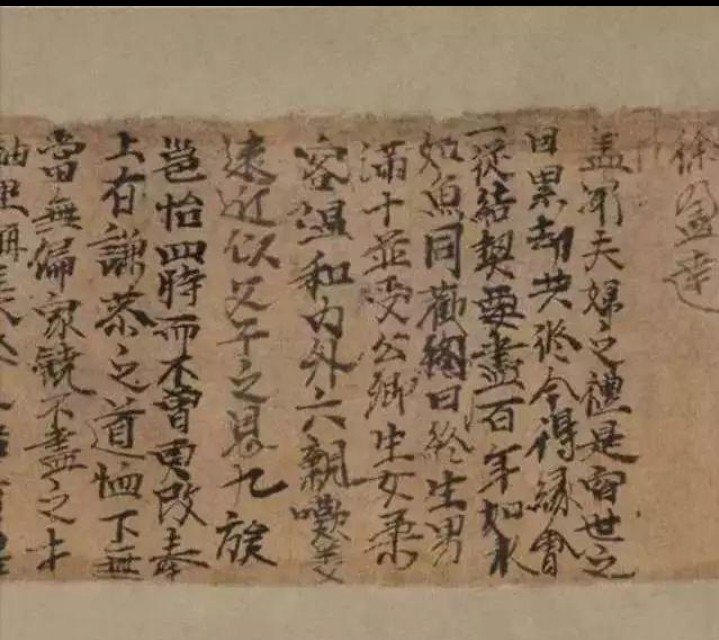 徐盈達
盖聞夫婦之禮是宿世之
因累劫共修今得緣會
一從結契要盡百年如水
如魚同歡終日生男
滿十並受公卿生女柔
容溫和內外六親歡美
遠近似父子之恩九族
邕怡四時而不曾更改奉
上有謙恭之道恤下無
當無偏家饒不盡之才